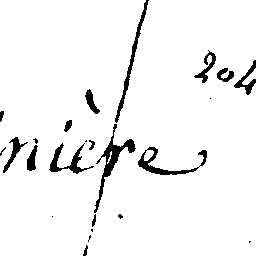 204
nière